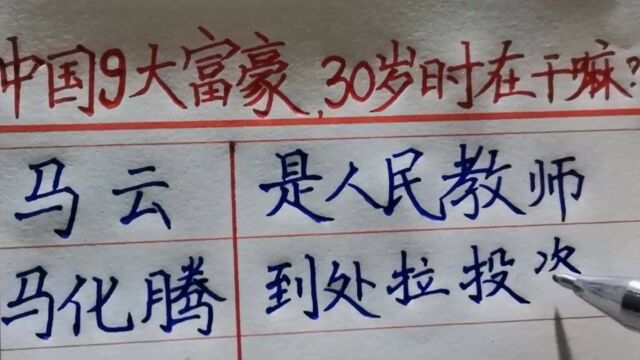 中国9大富豪,30岁时在干嘛?
马云 是人民教师
马化腾 到处拉投次